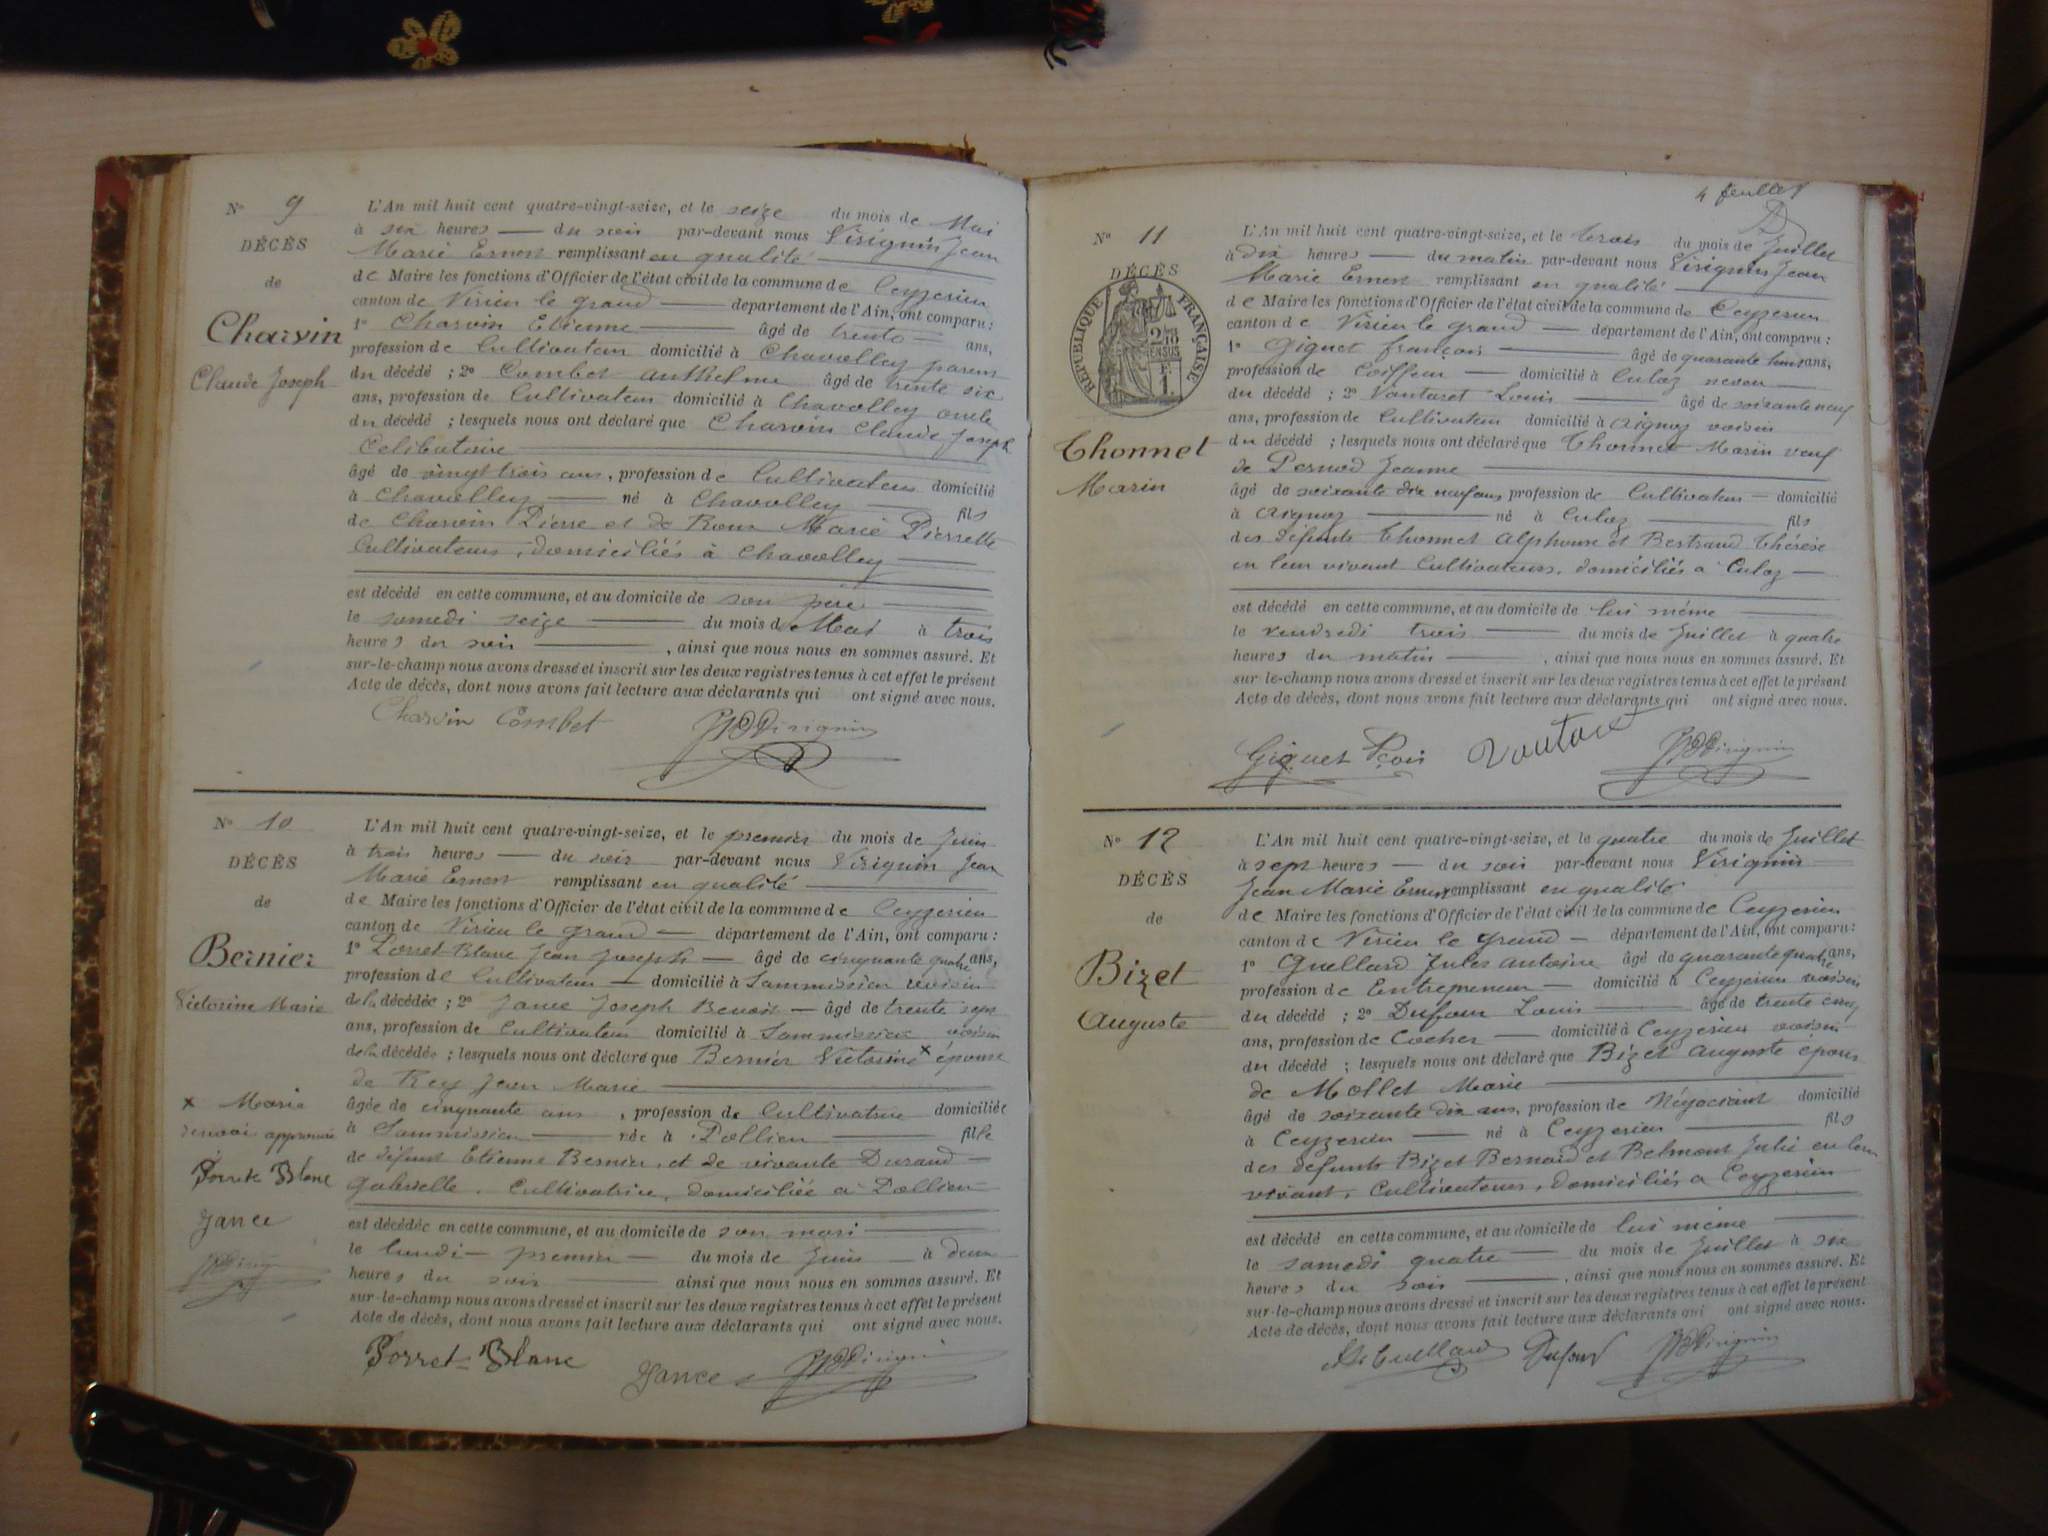 N° 9
DÉCÈS
de
Charvin
Claude Joseph
L'An mil huit cent quatre-vingt-seize, et le seize du mois de Mai
à six heures — du soir par-devant nous Virignin Jean
Marie Ernest remplissant en qualité
de Maire les fonctions d'Officier de l'état civil de la commune de Ceyzerieu
canton de Virieu le grand — département de l'Ain, ont comparu :
1° Charvin Etienne — âgé de trente — ans,
profession de Cultivateur domicilié à Chavolley parent
du décédé ; 2° Combet Anthelme âgé de trente six
ans, profession de Cultivateur domicilié à Chavolley oncle
du décédé ; lesquels nous ont déclaré que Charvin Claude Joseph
Célibataire
âgé de vingt trois ans, profession de Cultivateur domicilié
à Chavolley — né à Chavolley — fils
de Charvin Pierre et de Roux Marie Pierrette
Cultivateurs, domiciliés à Chavolley —
est décédé en cette commune, et au domicile de son père
le samedi seize — du mois de Mai à trois
heures du soir — , ainsi que nous nous en sommes assuré. Et
sur-le-champ nous avons dressé et inscrit sur les deux registres tenus à cet effet le présent
Acte de décès, dont nous avons fait lecture aux déclarants qui ont signé avec nous.
Charvin Combet Virignin
N° 10
DÉCÈS
de
Bernier
Victorine Marie
x Marie
renvoi approuvé
Porret Blanc
Jance
L'An mil huit cent quatre-vingt-seize, et le premier du mois de Juin
à trois heures — du soir par-devant nous Virignin Jean
Marie Ernest remplissant en qualité
de Maire les fonctions d'Officier de l'état civil de la commune de Ceyzerieu
canton de Virieu le grand — département de l'Ain, ont comparu :
1° Porret-Blanc Jean Joseph — âgé de cinquante quatre ans,
profession de Cultivateur — domicilié à Sammissieu voisin
de la décédée ; 2° Jance Joseph Benoit — âgé de trente sept
ans, profession de Cultivateur domicilié à Sammissieu voisin
de la décédée ; lesquels nous ont déclaré que Bernier Victorine x épouse
de Rey Jean Marie
âgée de cinquante ans , profession de Cultivatrice domiciliée
à Sammissieu — née à Dollieu — fille
de défunt Etienne Bernier, et de vivante Durand —
Gabrielle, Cultivatrice, domiciliée à Dollieu —
est décédée en cette commune, et au domicile de son mari
le lundi — premier — du mois de Juin — à deux
heures du soir — ainsi que nous nous en sommes assuré. Et
sur-le-champ nous avons dressé et inscrit sur les deux registres tenus à cet effet le présent
Acte de décès, dont nous avons fait lecture aux déclarants qui ont signé avec nous.
Porret-Blanc Jance Virignin
4 feuillet
N° 11
DÉCÈS
RÉPUBLIQUE FRANÇAISE
Thonnet
Marin
L'An mil huit cent quatre-vingt-seize, et le trois du mois de Juillet
à dix heures — du matin par-devant nous Virignin Jean
Marie Ernest remplissant en qualité
de Maire les fonctions d'Officier de l'état civil de la commune de Ceyzerieu
canton de Virieu le grand — département de l'Ain, ont comparu :
1° Giguet françois — âgé de quarante huit ans,
profession de Coiffeur — domicilié à Culoz neveu
du décédé ; 2° Vautaret Louis — âgé de soixante neuf
ans, profession de Cultivateur domicilié à Aignoz voisin
du décédé ; lesquels nous ont déclaré que Thonnet Marin veuf
de Pernod Jeanne
âgé de soixante dix neuf ans, profession de Cultivateur — domicilié
à Aignoz — né à Culoz — fils
des défunts Thonnet Alphonse et Bertrand Thérèse
en leur vivant Cultivateurs, domiciliés à Culoz —
est décédé en cette commune, et au domicile de lui même
le vendredi trois — du mois de Juillet à quatre
heures du matin — , ainsi que nous nous en sommes assuré. Et
sur-le-champ nous avons dressé et inscrit sur les deux registres tenus à cet effet le présent
Acte de décès, dont nous avons fait lecture aux déclarants qui ont signé avec nous.
Giguet Fçois Virignin
N° 12
DÉCÈS
de
Bizet
Auguste
L'An mil huit cent quatre-vingt-seize, et le quatre du mois de Juillet
à sept heures — du soir par-devant nous Virignin
Jean Marie Ernest remplissant en qualité
de Maire les fonctions d'Officier de l'état civil de la commune de Ceyzerieu
canton de Virieu le grand — département de l'Ain, ont comparu :
1° Guellard Jules Antoine âgé de quarante quatre ans,
profession de Entrepreneur — domicilié à Ceyzerieu voisin
du décédé ; 2° Dufour Louis — âgé de trente cinq
ans, profession de Cocher — domicilié à Ceyzerieu voisin
du décédé ; lesquels nous ont déclaré que Bizet Auguste époux
de Mollet Marie
âgé de soixante dix ans, profession de Négociant domicilié
à Ceyzerieu — né à Ceyzerieu — fils
des défunts Bizet Bernard et Belmont Julie en leur
vivant, Cultivateurs, domiciliés à Ceyzerieu
est décédé en cette commune, et au domicile de lui même
le samedi quatre — du mois de Juillet à six
heures du soir — , ainsi que nous nous en sommes assuré. Et
sur-le-champ nous avons dressé et inscrit sur les deux registres tenus à cet effet le présent
Acte de décès, dont nous avons fait lecture aux déclarants qui ont signé avec nous.
Dufour Virignin